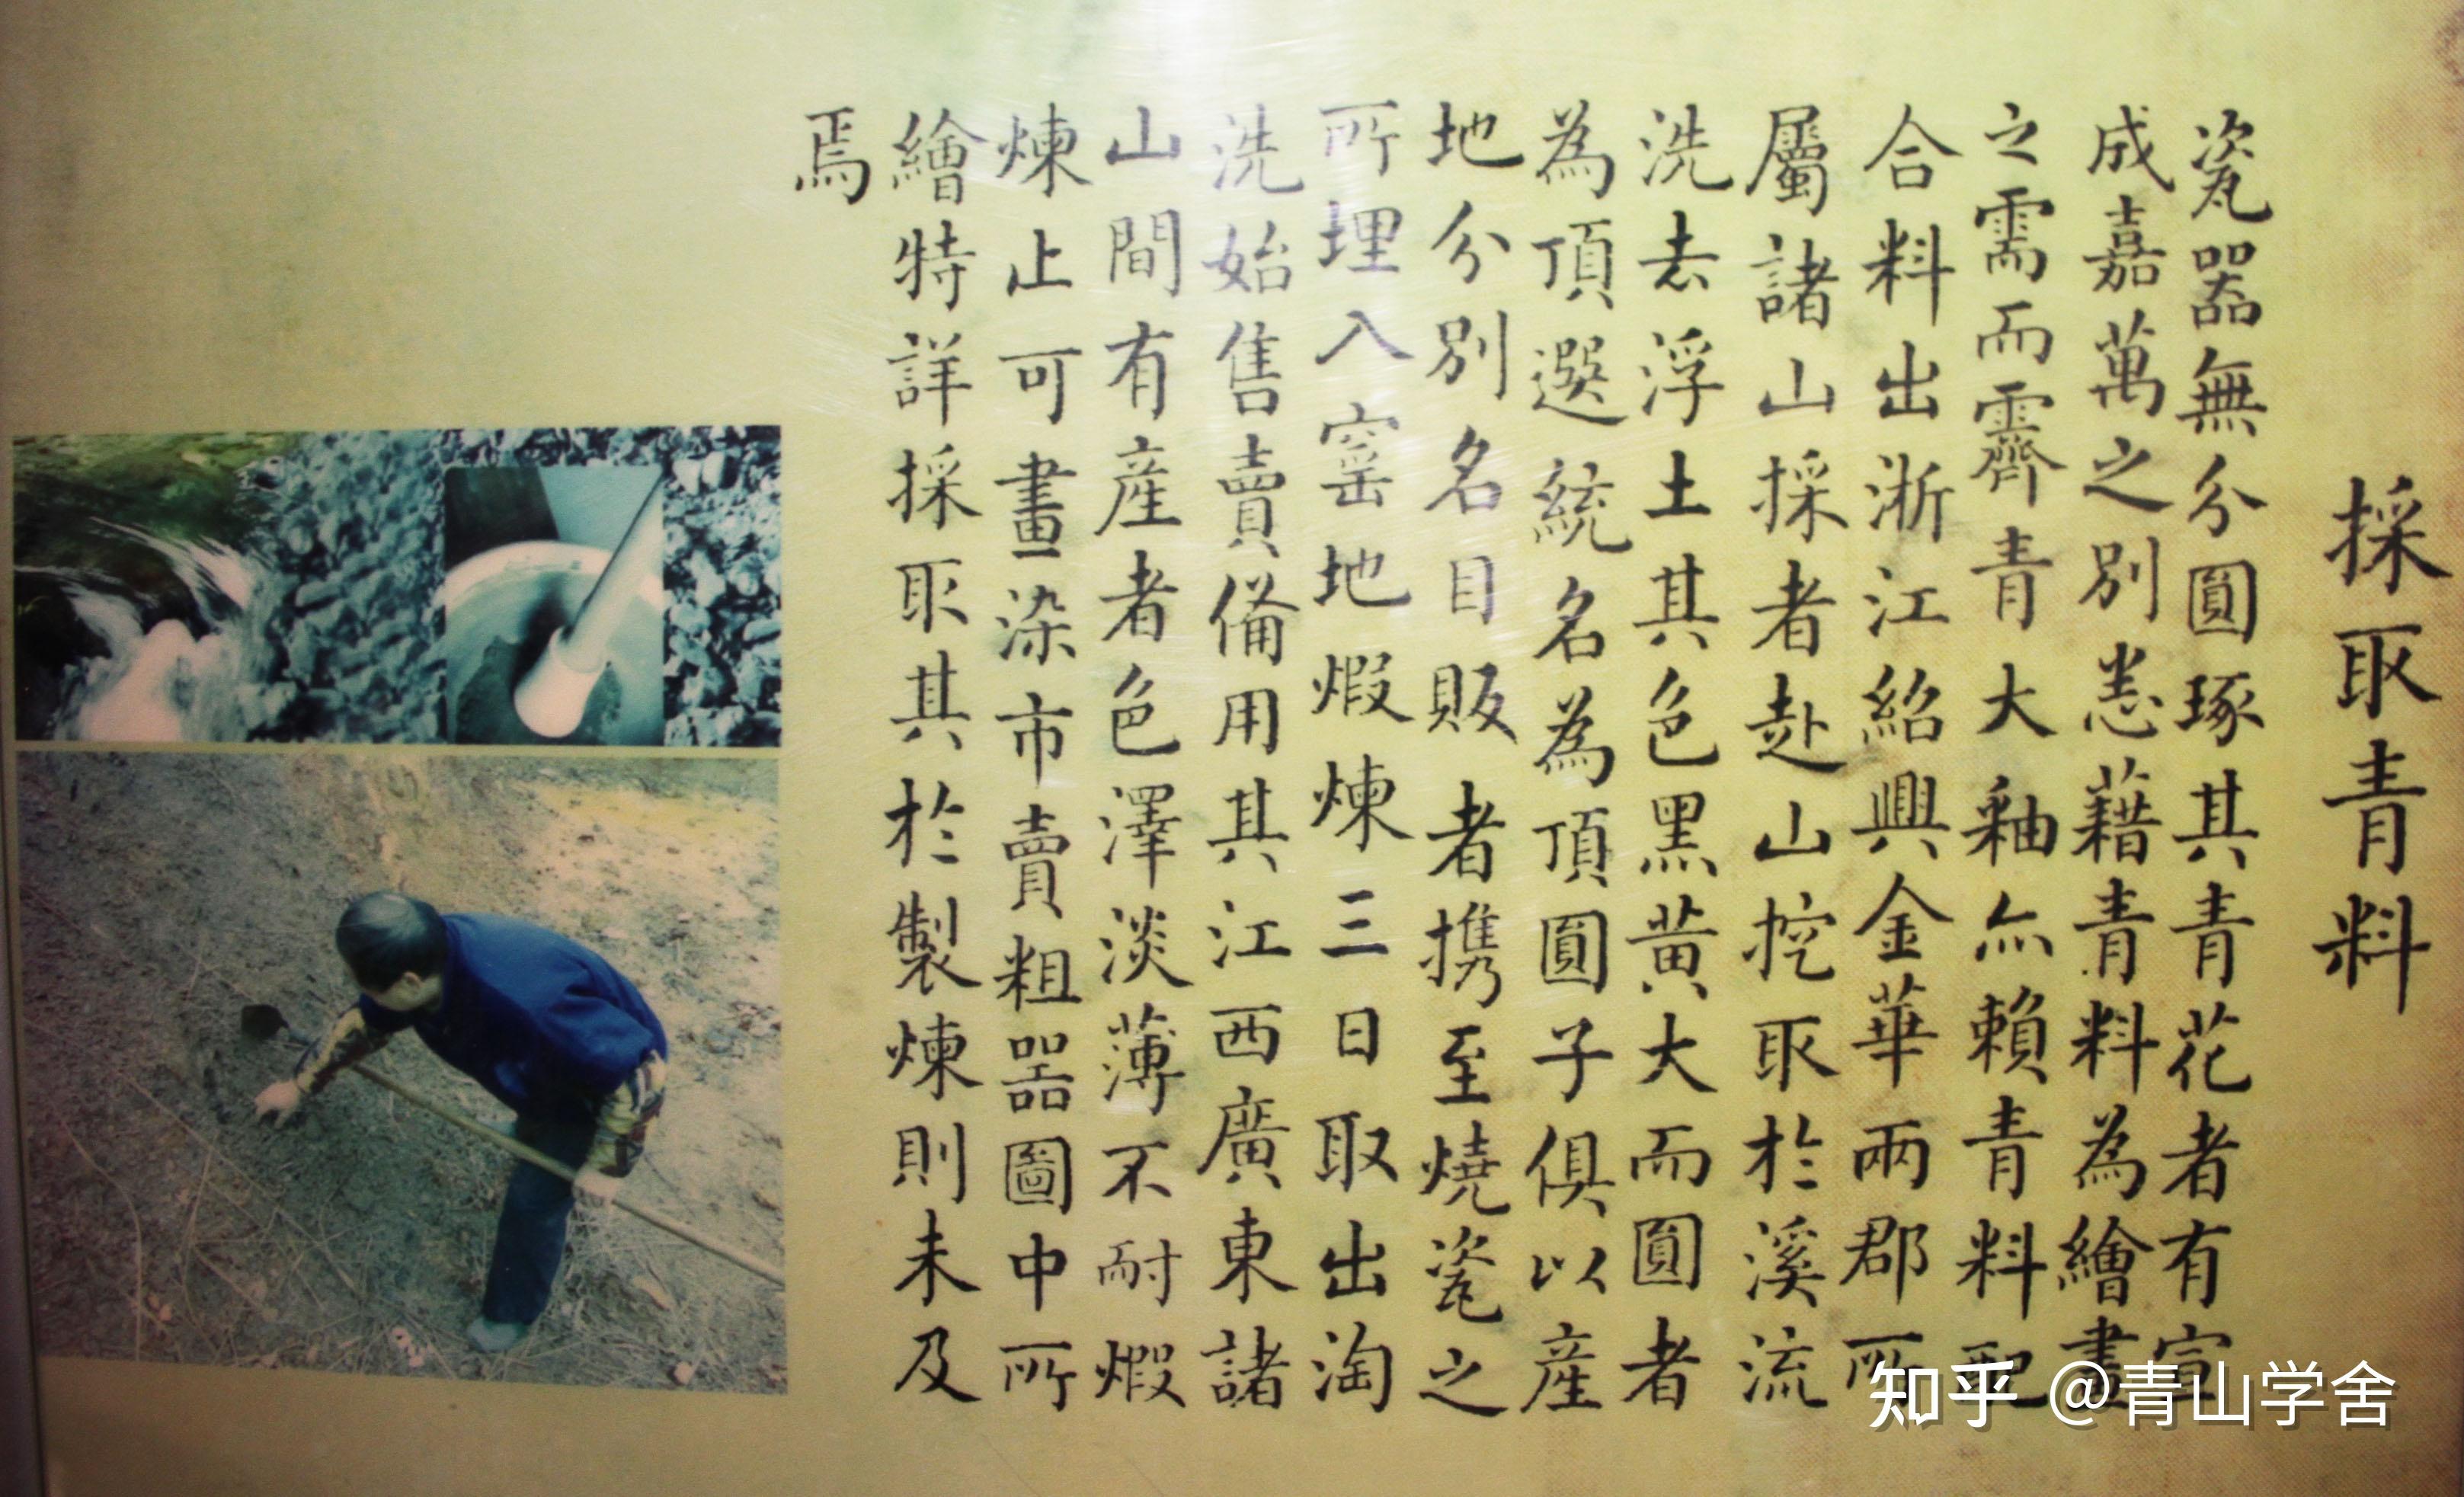 採取青料
瓷器無分圓琢其青花者有宣
成嘉萬之別悉藉青料為繪畫
之需而霽青大釉亦賴青料配
合料出浙江紹興金華兩郡所
屬諸山採者赴山挖取於溪流
洗去浮土其色黑黃大而圓者
為頂選統名為頂圓子俱以產
地分別名目販者携至燒瓷之
所埋入窑地煆煉三日取出淘
洗始售賣備用其江西廣東諸
山間有產者色澤淡薄不耐煆
煉止可畫染市賣粗器圖中所
繪特詳採取其於製煉則未及
焉
知乎 @青山学舍